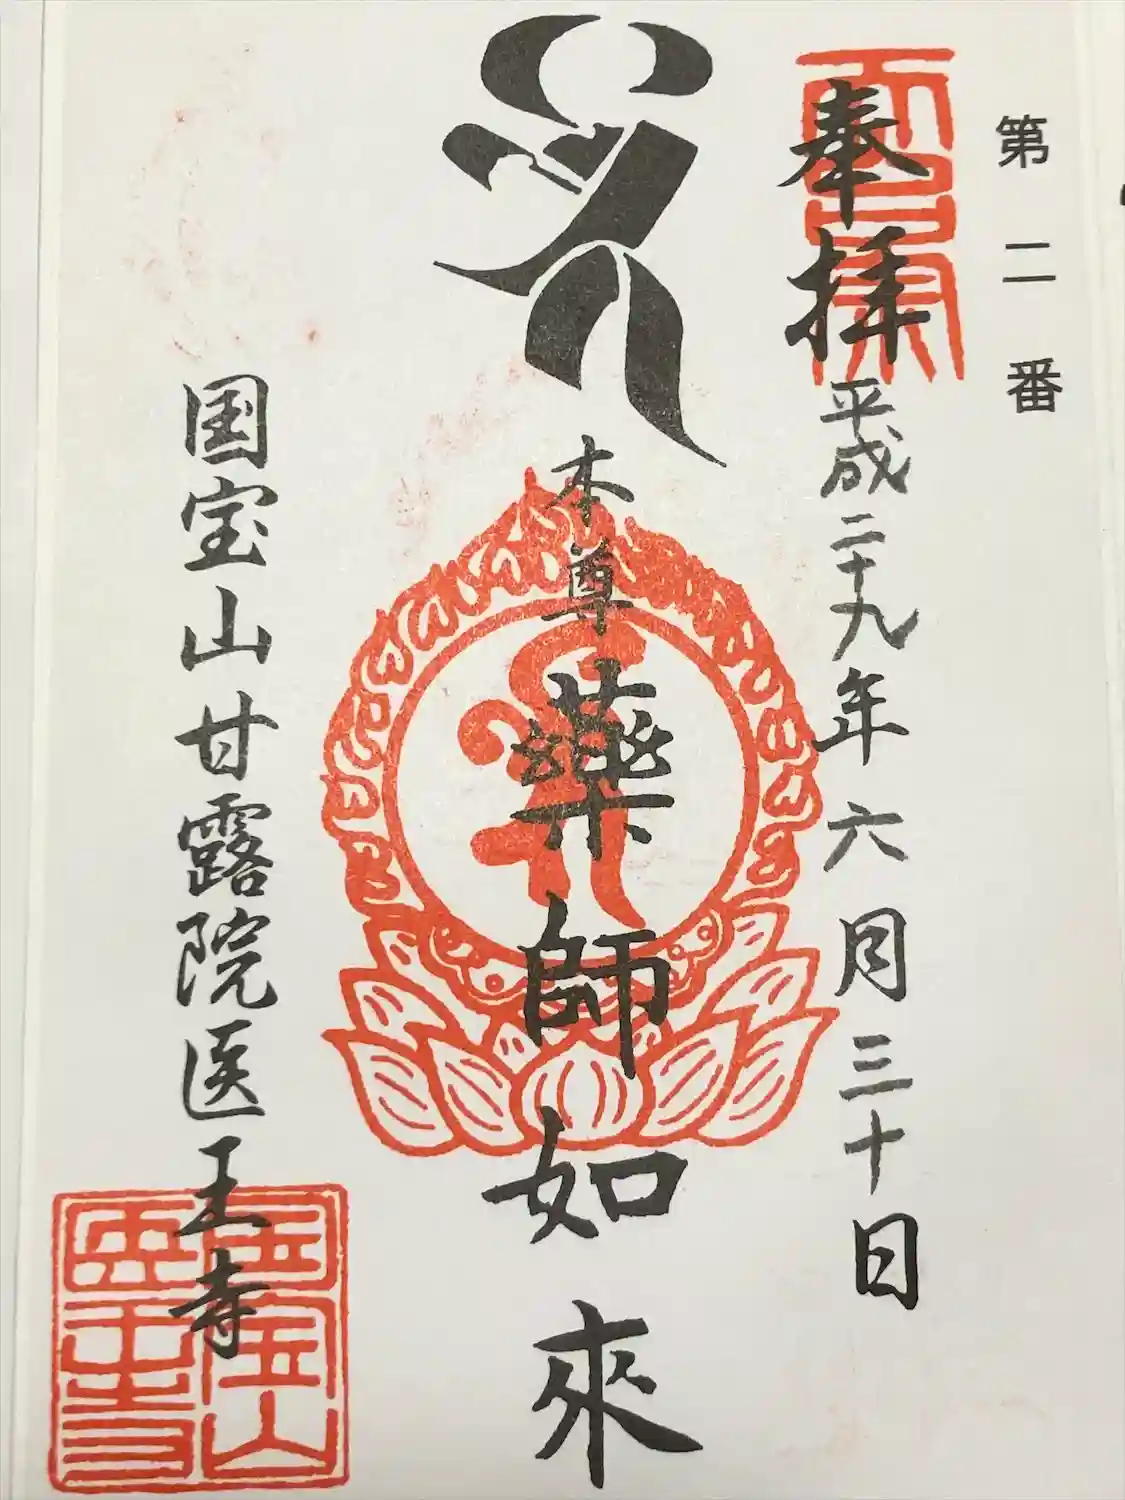 第二番
奉拝
平成二十九年六月三十日
本尊
藥師如來
国宝山甘露院医王寺
国宝山
医王寺